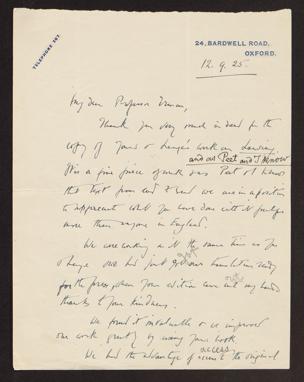 TELEPHONE 797.
24, BARDWELL ROAD,
OXFORD.
12. 9. 25.
My dear Professor
Thank you very much indeed for the
copy of yours & Lange's work on
and as Peet and I know
It is a fine piece of work as
this text from end to end we are in a position
to appreciate what you have done with it perhaps
more than anyone in England.
We were working at it the same time as you
& Lange and had just got our translation ready
for the press when your edition came into my hands
thanks to your kindness.
We found it invaluable & we improved
our work greatly by using your book.
We had the advantage of access to the original